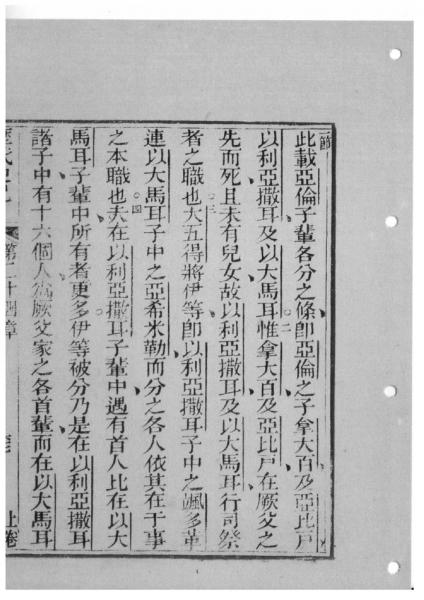 一節
此載亞倫子輩各分之條卽亞倫之子拿大百及亞比戶
以利亞撒耳及以大馬耳二惟拿大百及亞比戶在厥父之
先而死且未有兒女故以利亞撒耳及以大馬耳行司祭
者之職也三大五得將伊等卽以利亞撒耳子中之颯多革
連以大馬耳子中之亞希米勒而分之各人依其在于事
之本職也四夫在以利亞撒耳子輩中遇有首人比在以大
馬耳子輩中所有者更多伊等被分乃是在以利亞撒耳
諸子中有十六個人爲厥父家之各首輩而在以大馬耳
第二十四章 上卷